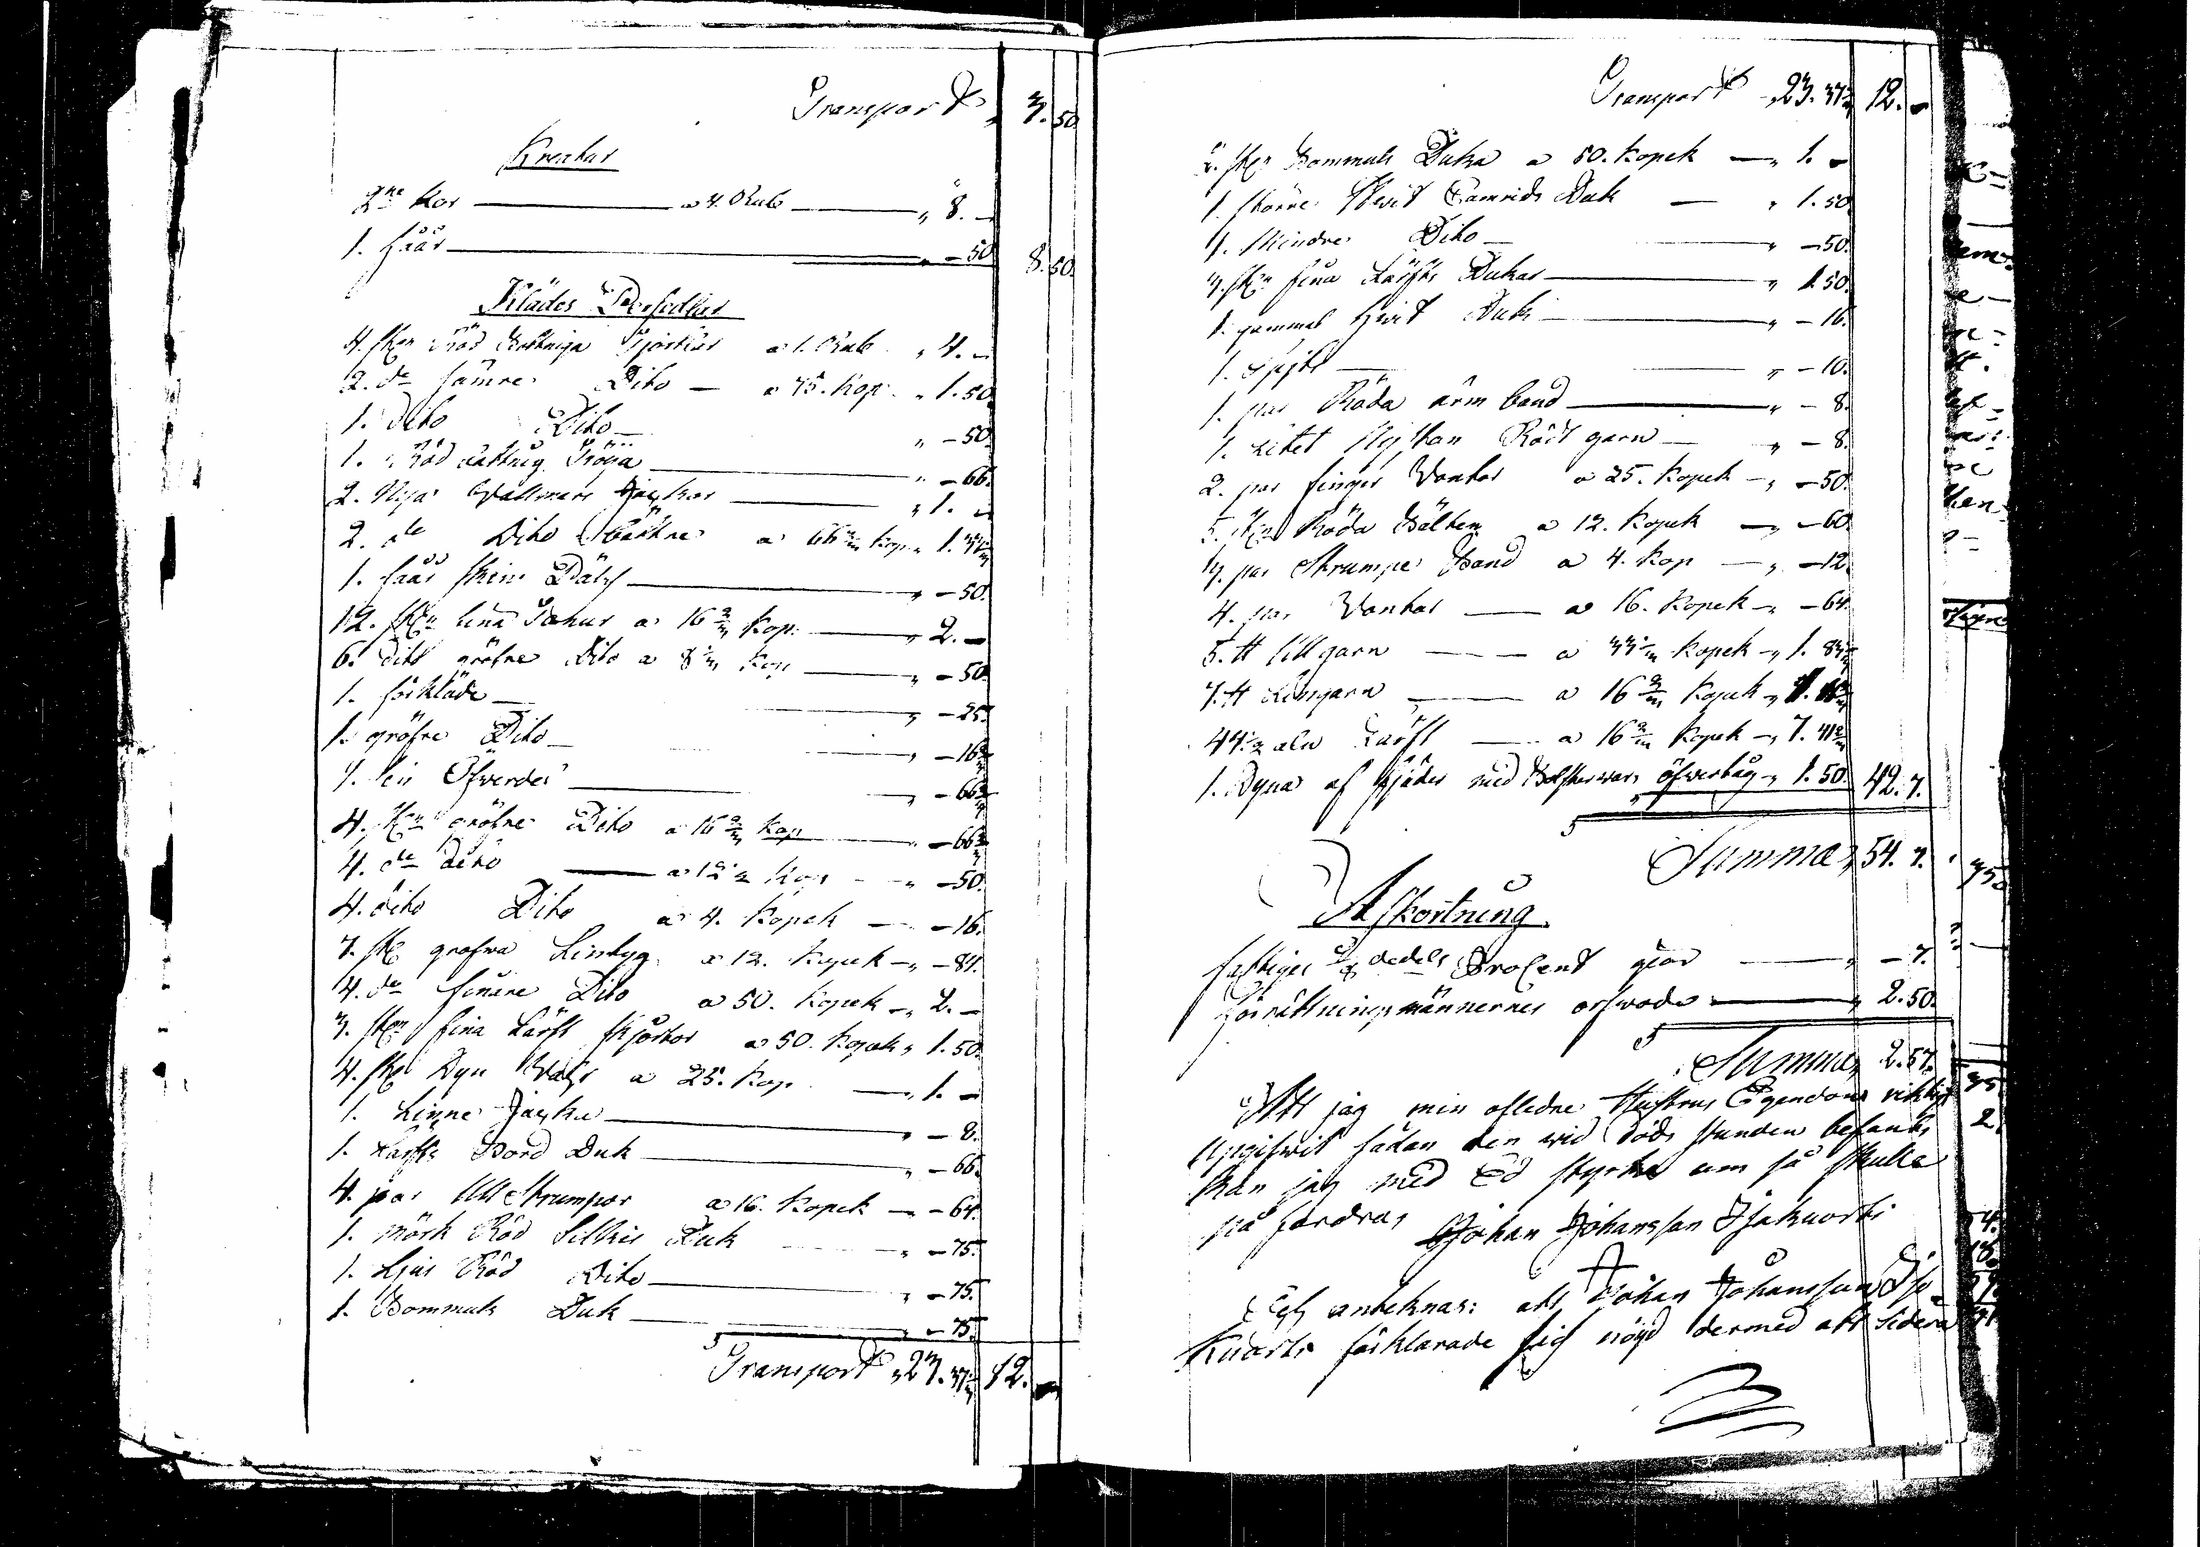 Transport „ 3. 50.
Kreatur
2ne kor — a 4. Rub — „ 8. —
1. får — „ — 50. 8. 50.
Klädes Persedlar
4. st:n Röd Kjortlar a 1. Rub „ 4. —
2. d:o sämre Dito — a 75. Kop „ 1. 50.
1. Dito Dito — „ — 50.
1. Röd Tröya — „ — 66.
2. Nya Wallmars Jackor — „ 1. —
2. d:o Dito bättre a 66 2/3 Kop „ 1. 33 1/3
1. får skins Päls — „ — 50.
12. st:n a 16 2/3 Kop: — „ 2. —
6. dito gröfre Dito a 8 1/3 Kop — „ — 50.
1. förkläde — „ — 25.
1. gröfre Dito — „ — 16 2/3
1. Öfverdel — „ — 66 2/3
4. st:n gröfre Dito a 16 2/3 Kop — „ — 66 2/3
4. d:o dito — a 12 1/2 Kop — „ — 50.
4. dito Dito a 4. Kopek — — 16.
7. st: grofwa Lintyg a 12. Kopek — „ — 84.
4. d:o finare Dito a 50. Kopek — „ 2. —
3. st:n fina Lärfts skjortor a 50. Kopek „ 1. 50.
4. st: Dyn a 25. Kop — 1. —
1. Linne Jacka — „ — 8.
1. Lärfts Bord Duk — „ — 66.
4. par Ull Strumpor a 16. Kopek — — 64.
1. mörk Röd Silkes Duk — „ — 75.
1. Ljus Röd Dito — „ — 75.
1. Bommuls Duk — „ — 75.
Transport „ 23. 37 1/3 12. —
Transport „ 23. 37 1/3 12. —
2. st:n Bommuls Duka a 50. Kopek — „ 1. —
1. större Hvit Camrids Duk — „ 1. 50.
1. Mindre Dito — „ — 50.
3. st:n fina Lärfts Dukar — „ 1. 50.
1. gammal Hvit Duk — „ — 16.
1. — „ — 10.
1. par Röda arm band — „ — 8.
1. Litet Nystan Rödt garn — „ — 8.
2. par finger Vantar a 25. Kopek — „ — 50.
5. st:n Röda Bälten a 12. Kopek — „ — 60.
3. par Strumpe Band a 4. Kop — „ — 12.
4. par Vantar — a 16. Kopek — „ — 64.
5. ℔ Ullgarn — a 33 1/3 Kopek — „ 1. 83 1/3
7. ℔ Lingarn — a 16 2/3 Kopek — „ 1. 16 2/3
44 1/2 aln Lärft — a 16 2/3 Kopek — „ 7. 41 2/3
1. Dyna af fjäder med öfverdrag „ 1. 50. 42. 7.
Summa „ 54. 7.
Afkortning
fattiges dedels Procent giör — „ — 7.
förrättningsmännernes arfwode — „ 2. 50.
Summa „ 2. 57.
Att jag min aflidne Hustrus Egendom riktigt
Upgifwit sådan den wid döds stunden befants
kan jag med Ed styrka om så skulle
på fordras Johan Johansson
antecknas: att Johan Johansson
förklarade sig nöyd dermed att